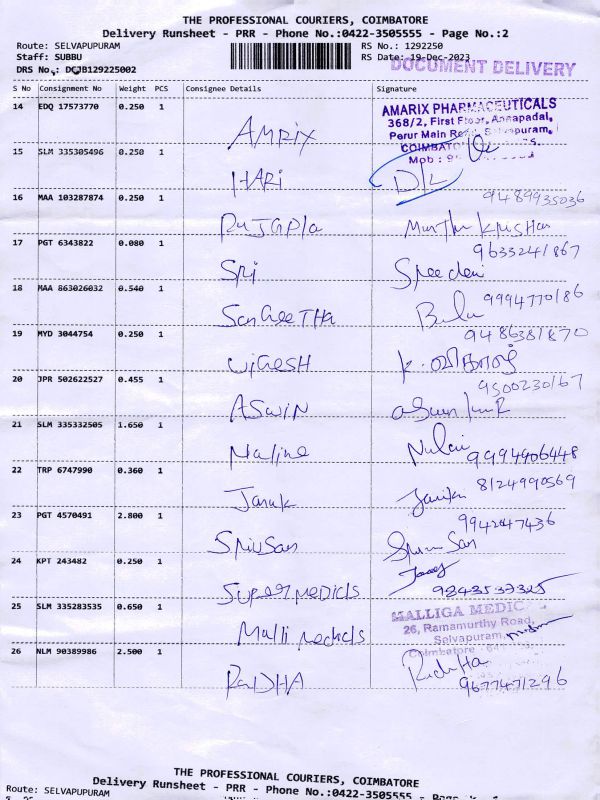 THE PROFESSIONAL COURIERS, COIMBATORE
Delivery Runsheet - PRR - Phone No.:0422-3505555 - Page No.:2
Route: SELVAPUPURAM RS No.: 1292250
Staff: SUBBU RS Date: 19-Dec-2023
DRS No.: DCJB129225002 DOCUMENT DELIVERY
S No Consignment No Weight PCS Consignee Details Signature
14 EDQ 17573770 0.250 1 AMRIX
AMARIX PHARMACEUTICALS
368/2, First Floor, Annapadal,
Perur Main Road, Selvapuram,
COIMBATORE
Mob : 9
15 SLM 335305496 0.250 1 HARi
16 MAA 103287874 0.250 1 RajGopla Murthu Krishan 9489935036
17 PGT 6343822 0.080 1 Sri Sreedevi 9633241867
18 MAA 863026032 0.540 1 SanGeeTHa Bala 9994770186
19 MYD 3044754 0.250 1 ViGesH K. 9486381870
20 JPR 502622527 0.455 1 ASWiN 9500230167
21 SLM 335332505 1.650 1 Maline 9994906448
22 TRP 6747990 0.360 1 Janak 8124990569
23 PGT 4570491 2.800 1 SriuSan 9942047436
24 KPT 243482 0.250 1 Super Medicls 9843537325
25 SLM 335283535 0.650 1 Malli Medicals
MALLIGA MEDIC
26, Ramamurthy Road,
Selvapuram,
Coimbatore - 641
26 NLM 90389986 2.500 1 RaDHA RadHa 9677471296
THE PROFESSIONAL COURIERS, COIMBATORE
Delivery Runsheet - PRR - Phone No.:0422-3505555
Route: SELVAPUPURAM